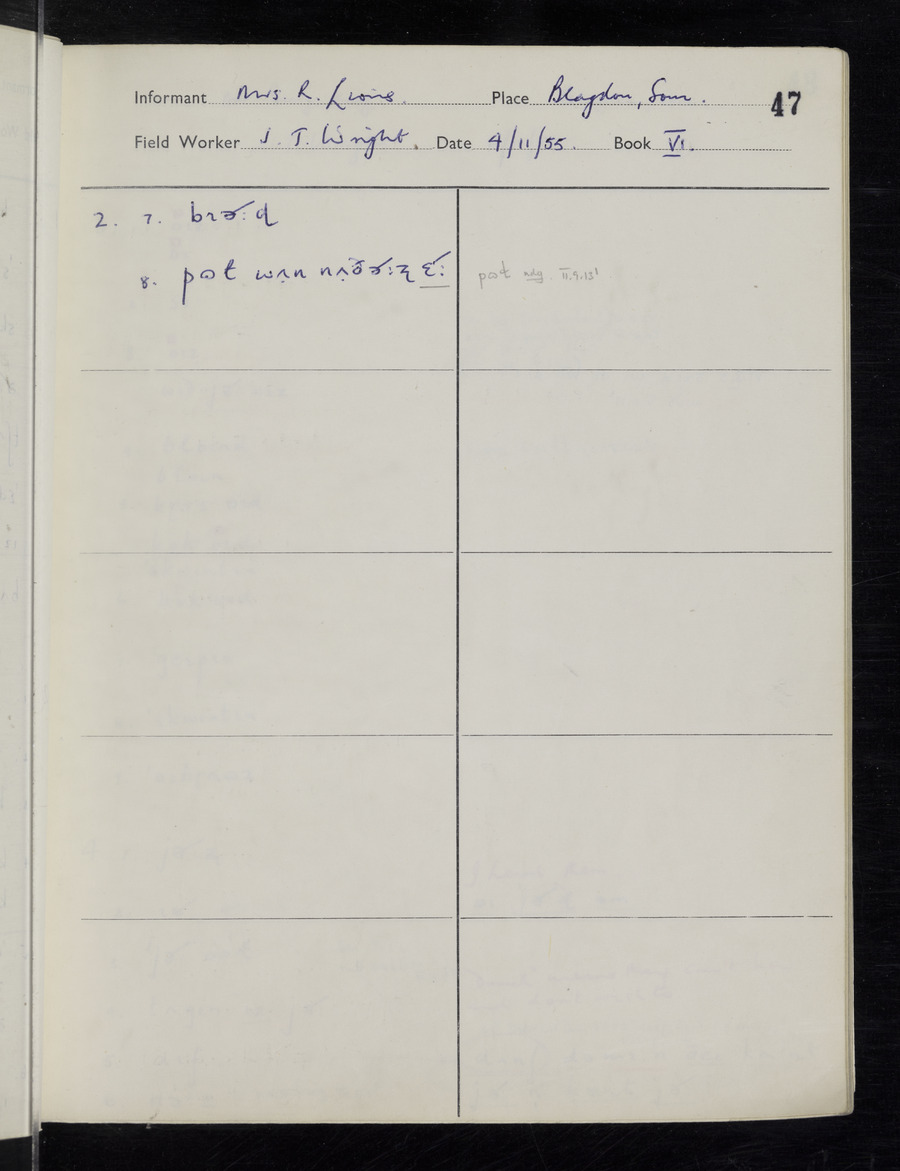 Informant Mrs. R. Lyons. Place Blagdon, Som. 47
Field Worker J. T. Wright. Date 4/11/55. Book VI.
2. 7. brɚ:d
8. pɒt wʌ̣n nʌ̣ðɚ:z ɛ́:
pɒt ndg. II.9.13¹